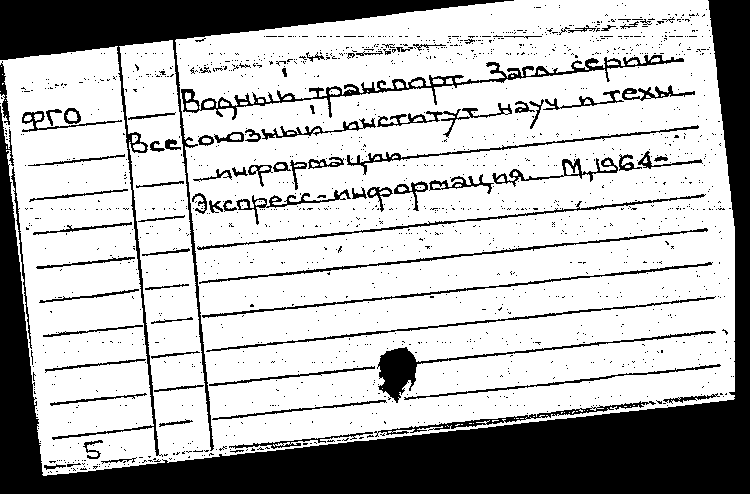 Водный транспорт. Загл. серии.
ФГО
Всесоюзный институт науч и техн
информации
Экспресс-информация М, 1964-
5